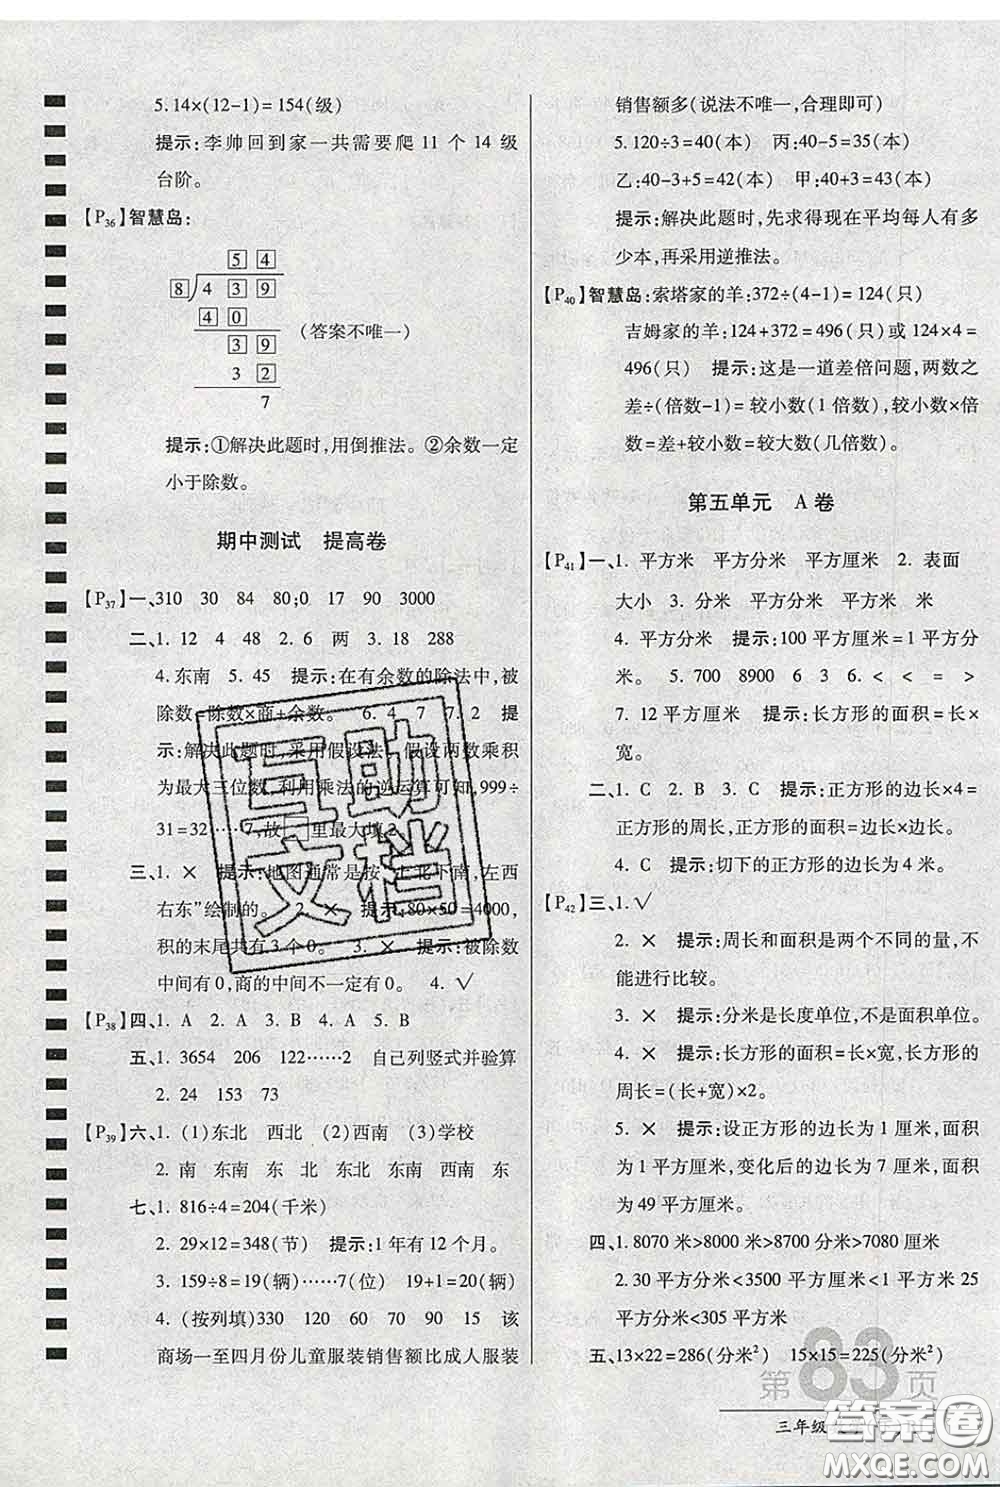 5.14×(12-1)=154(级)
提示:李帅回到家一共需要爬 11 个 14 级
台阶。
【P36】智慧岛:
5 4
8 4 3 9
4 0
3 9
(答案不唯一)
3 2
7
提示:①解决此题时,用倒推法。②余数一定
小于除数。
期中测试 提高卷
【P37】一、310 30 84 80;0 17 90 3000
二、1. 12 4 48 2. 6 两 3. 18 288
4. 东南 5. 45 提示:在有余数的除法中,被
除数=除数×商+余数。 6. 4 7 7. 2 提
示:解决此题时,采用假设法。假设两数乘积
为最大三位数,利用乘法的逆运算可知,999÷
31=32……7,故□里最大填2。
三、1. × 提示:地图通常是按“上北下南,左西
右东”绘制的。 2. × 提示:80×50=4000,
积的末尾共有3个0。 3. × 提示:被除数
中间有0,商的中间不一定有0。 4. √
【P38】四、1. A 2. A 3. B 4. A 5. B
五、1. 3654 206 122……2 自己列竖式并验算
2. 24 153 73
【P39】六、1. (1)东北 西北 (2)西南 (3)学校
2. 南 东南 东 北 东北 东南 西南 东
七、1. 816÷4=204(千米)
2. 29×12=348(节) 提示:1 年有 12 个月。
3. 159÷8=19(辆)……7(位) 19+1=20(辆)
4. (按列填)330 120 60 70 90 120 该
商场一至四月份儿童服装销售额比成人服装
销售额多(说法不唯一,合理即可)
5.120÷3=40(本) 丙:40-5=35(本)
乙:40-3+5=42(本) 甲:40+3=43(本)
提示:解决此题时,先求得现在平均每人有多
少本,再采用逆推法。
【P40】智慧岛:索塔家的羊:372÷(4-1)=124(只)
吉姆家的羊:124+372=496(只)或 124×4=
496(只) 提示:这是一道差倍问题,两数之
差÷(倍数-1)=较小数(1 倍数),较小数×倍
数=差+较小数=较大数(几倍数)。
第五单元 A 卷
【P41】一、1. 平方米 平方分米 平方厘米 2. 表面
大小 3. 分米 平方分米 平方米 米
4. 平方分米 提示:100 平方厘米=1 平方分
米。 5. 700 8900 6 3 6. < < = >
7. 12 平方厘米 提示:长方形的面积=长×
宽。
二、1. C 2. B 3. C 提示:正方形的边长×4=
正方形的周长,正方形的面积=边长×边长。
4. C 提示:切下的正方形的边长为 4 米。
【P42】三、1.√
2. × 提示:周长和面积是两个不同的量,不
能进行比较。
3. × 提示:分米是长度单位,不是面积单位。
4. × 提示:长方形的面积=长×宽,长方形的
周长=(长+宽)×2。
5. × 提示:设正方形的边长为 1 厘米,面积
为 1 平方厘米,变化后的边长为 7 厘米,面积
为 49 平方厘米。
四、1. 8070 米>8000 米>8700 分米>7080 厘米
2.30 平方分米<3500 平方厘米<1 平方米 25
平方分米<305 平方米
五、13×22=286(分米²) 15×15=225(分米²)
第83页
三年级
互助
文档
答案圈
MXQE.COM